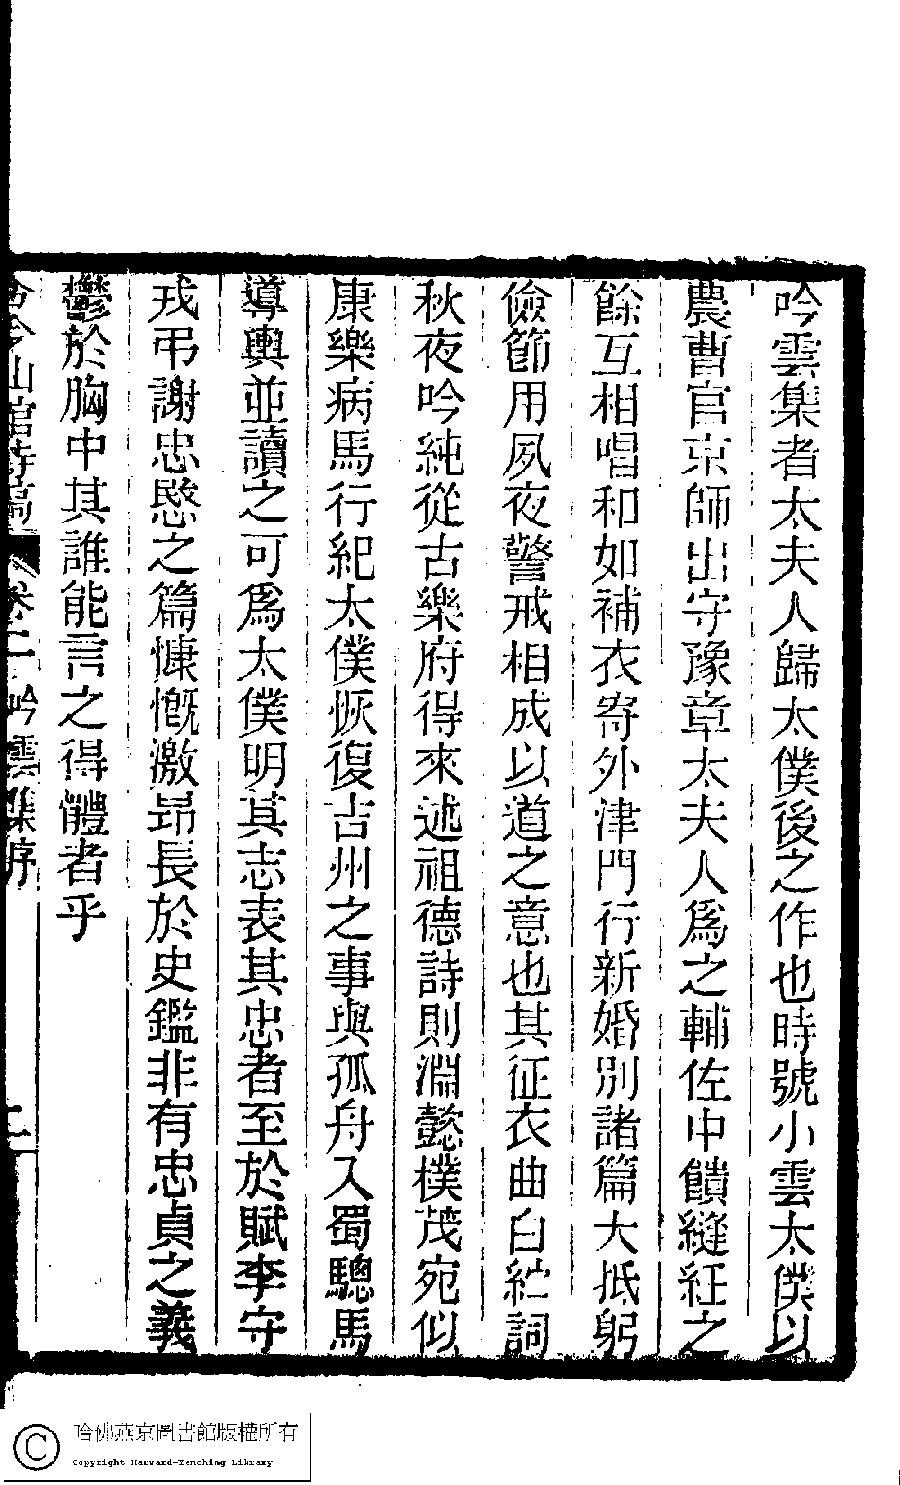 吟雲集者太夫人歸太僕後之作也時號小雲太僕以
農曹官京師出守豫章太夫人爲之輔佐中饋縫紝之
餘互相唱和如補衣寄外津門行新婚別諸篇大抵躬
儉節用夙夜警戒相成以道之意也其征衣曲白紵詞
秋夜吟純從古樂府得來述祖德詩則淵懿樸茂宛似
康樂病馬行紀太僕恢復古州之事與孤舟入蜀驄馬
導輿並讀之可爲太僕明其志表其忠者至於賦李守
戎弔謝忠愍之篇慷慨激昂長於史鑑非有忠貞之義
鬱於胸中其誰能言之得體者乎
山館詩稿 卷二 吟雲集序 二
哈佛燕京圖書館版權所有
Copyright Harvard-Yenching Library